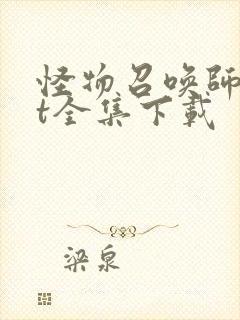 怪物召唤師
t全集下載
梁泉